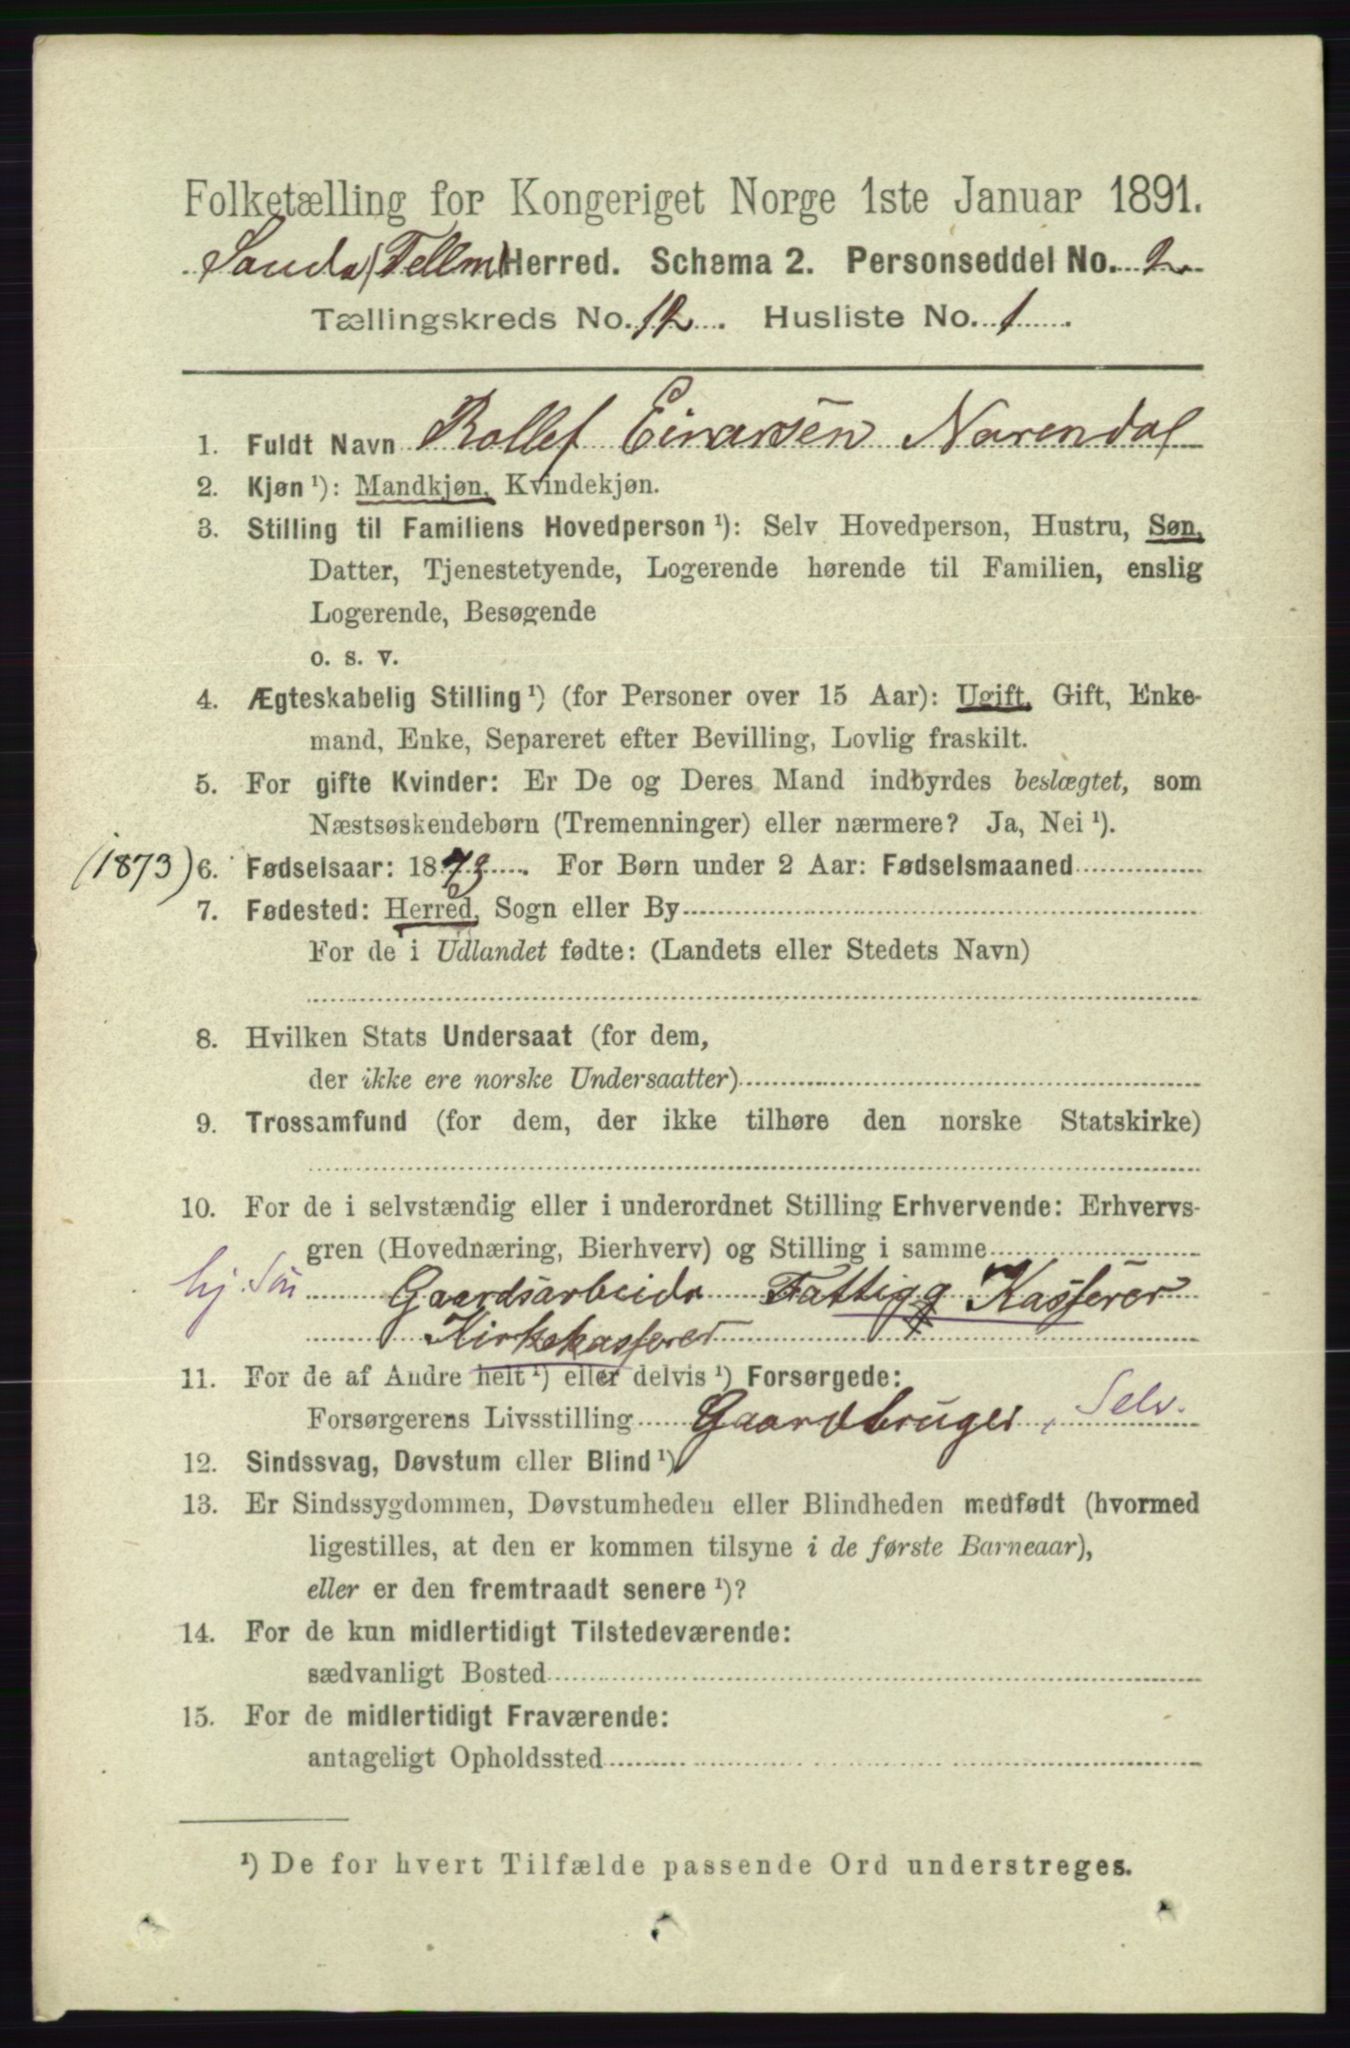 Folketælling for Kongeriget Norge 1ste Januar 1891.
Sauda (Tellm) Herred. Schema 2. Personseddel No. 2
Tællingskreds No. 12. Husliste No. 1.
1. Fuldt Navn Rollef Einarsen Narendal
2. Kjøn ¹): Mandkjøn, Kvindekjøn.
3. Stilling til Familiens Hovedperson ¹): Selv Hovedperson, Hustru, Søn,
Datter, Tjenestetyende, Logerende hørende til Familien, enslig
Logerende, Besøgende
o. s. v.
4. Ægteskabelig Stilling ¹) (for Personer over 15 Aar): Ugift, Gift, Enke-
mand, Enke, Separeret efter Bevilling, Lovlig fraskilt.
5. For gifte Kvinder: Er De og Deres Mand indbyrdes beslægtet, som
Næstsøskendebørn (Tremenninger) eller nærmere? Ja, Nei ¹).
(1873) 6. Fødselsaar: 1873. For Børn under 2 Aar: Fødselsmaaned
7. Fødested: Herred, Sogn eller By
For de i Udlandet fødte: (Landets eller Stedets Navn)
8. Hvilken Stats Undersaat (for dem,
der ikke ere norske Undersaatter)
9. Trossamfund (for dem, der ikke tilhøre den norske Statskirke)
10. For de i selvstændig eller i underordnet Stilling Erhvervende: Erhvervs-
gren (Hovednæring, Bierhverv) og Stilling i samme
hj. Søn Gaardsarbeide Fattig g Kasserer
Kirkekasserer
11. For de af Andre helt ¹) eller delvis ¹) Forsørgede:
Forsørgerens Livsstilling Gaardbruger, Selv.
12. Sindssvag, Døvstum eller Blind ¹)
13. Er Sindssygdommen, Døvstumheden eller Blindheden medfødt (hvormed
ligestilles, at den er kommen tilsyne i de første Barneaar),
eller er den fremtraadt senere ¹)?
14. For de kun midlertidigt Tilstedeværende:
sædvanligt Bosted
15. For de midlertidigt Fraværende:
antageligt Opholdssted
¹) De for hvert Tilfælde passende Ord understreges.